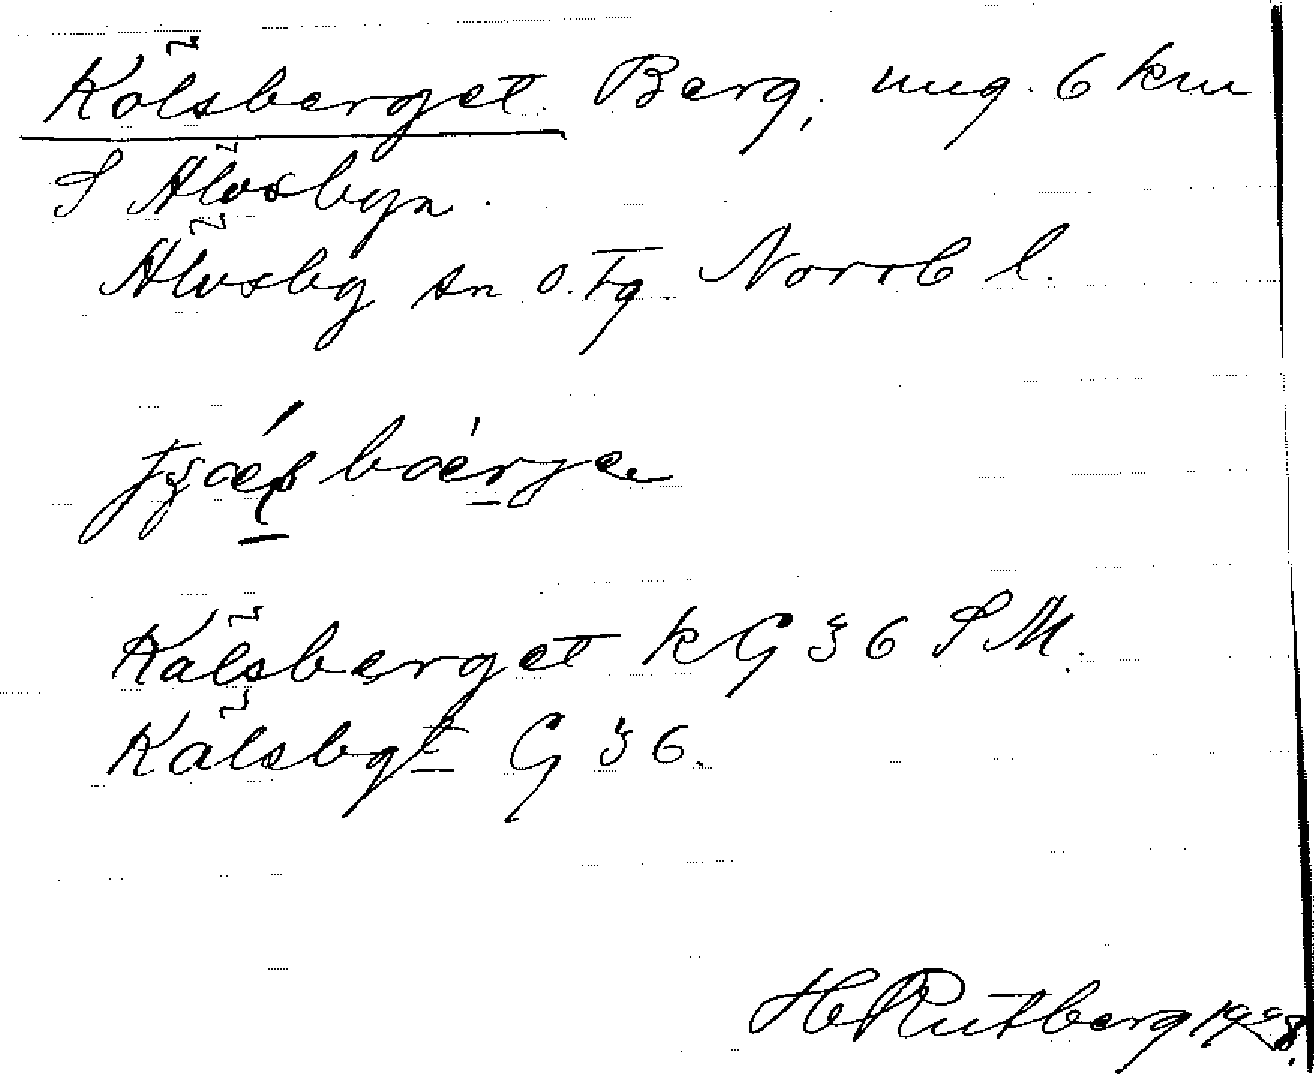 Kölsberget. Berg, ung. 6 km
S Älvsbyn.
Älvsby sn o. tg Norrb l.
Kälsberget k G 36 S M.
Kälsbgt G 36.
H Rutberg 1928.